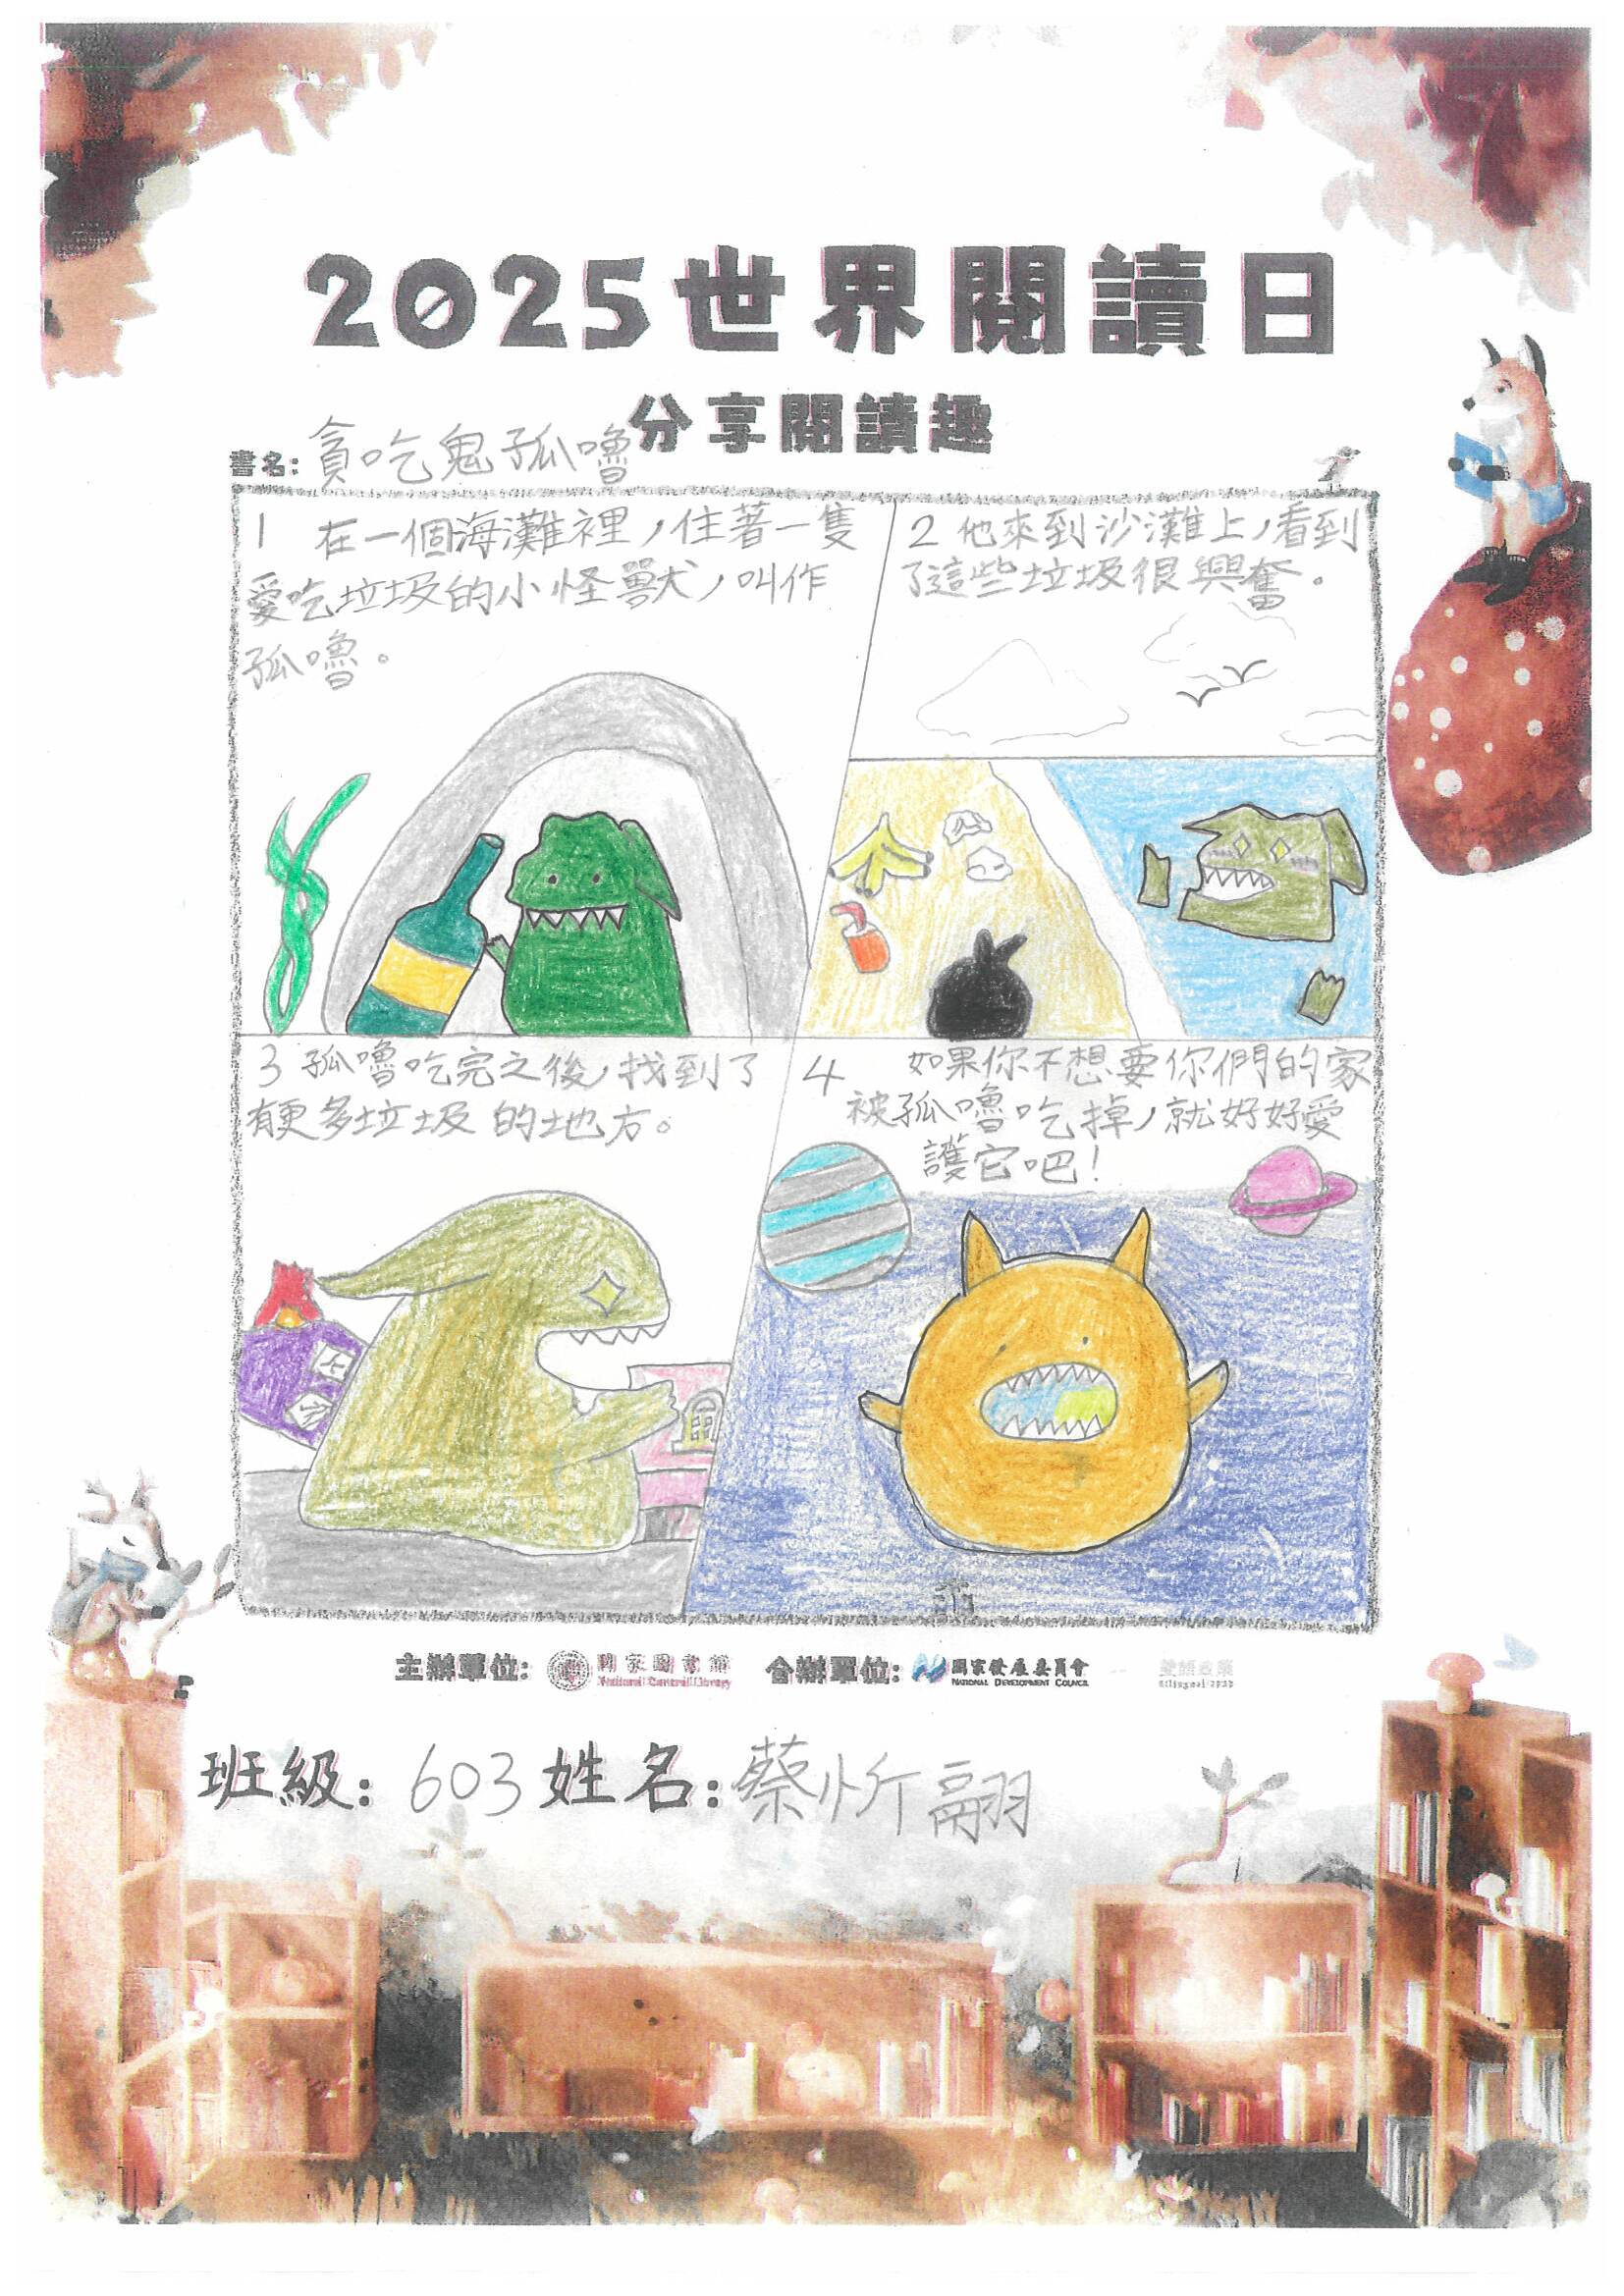 2025世界閱讀日
分享閱讀趣
書名: 貪吃鬼孤嚕
1 在一個海灘裡,住著一隻
愛吃垃圾的小怪獸,叫作
孤嚕。
2 他來到沙灘上,看到
了這些垃圾很興奮。
3 孤嚕吃完之後,找到了
有更多垃圾的地方。
4 如果你不想要你們的家
被孤嚕吃掉,就好好愛
護它吧!
主辦單位: 國家圖書館 National Central Library 合辦單位: 國家發展委員會 NATIONAL DEVELOPMENT COUNCIL 雙語政策 Bilingual 2030
班級: 603 姓名: 蔡忻翮